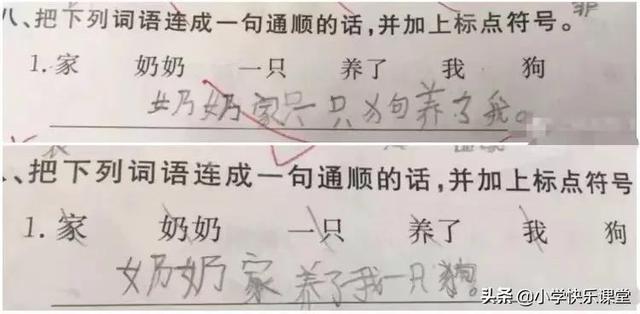 八、把下列词语连成一句通顺的话,并加上标点符号。
1. 家 奶奶 一只 养了 我 狗
奶奶家只只狗养了我。
、把下列词语连成一句通顺的话,并加上标点符号
1. 家 奶奶 一只 养了 我 狗
奶奶家养了我一只狗。
头条 @小学快乐课堂